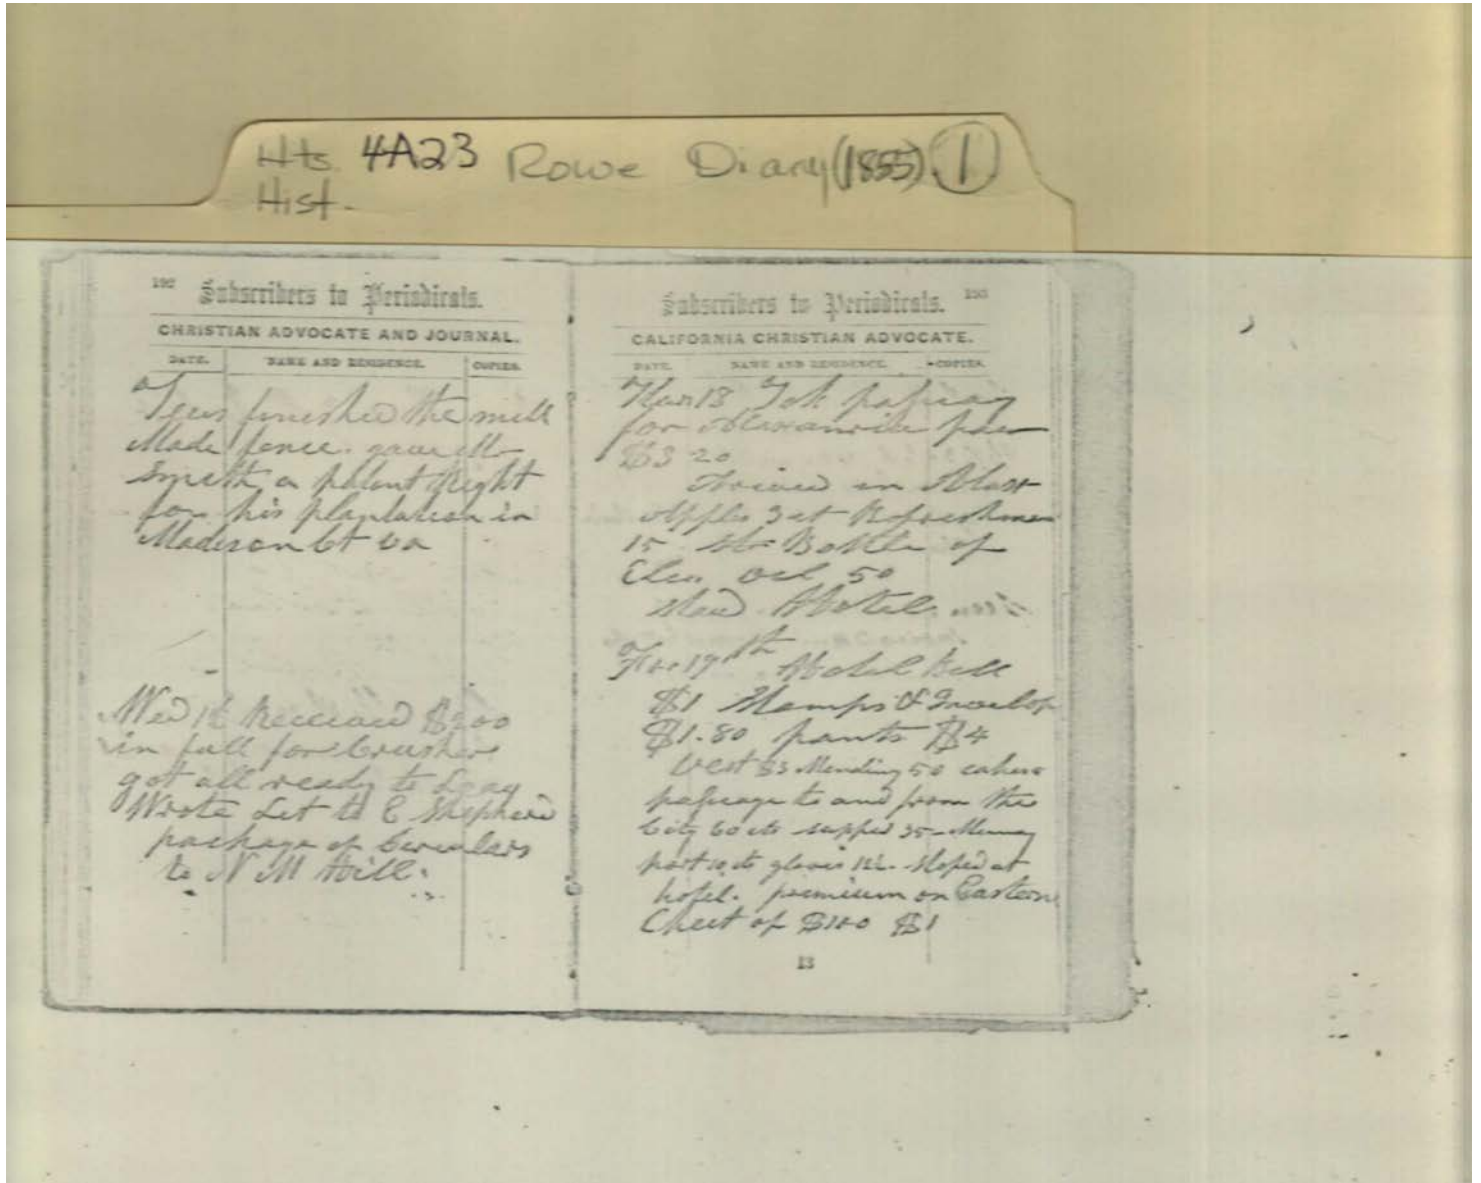 Hts. 4A23 Rowe Diary (1855) 1
Hist.
192 Subscribers to Periodicals.
CHRISTIAN ADVOCATE AND JOURNAL.
DATE. NAME AND RESIDENCE. COPIES.
Tues finished the mill
Made fence. gave Mr
Smith a patent Right
for his plantation in
Madison Ct Va
Wed 16 Received $200
in full for Crusher
got all ready to
Wrote Let to E Shepherd
package of Circulars
to N M Hill.
Subscribers to Periodicals. 193
CALIFORNIA CHRISTIAN ADVOCATE.
DATE. NAME AND RESIDENCE. COPIES.
18 passag
for Alexandria
$3 20
Arived in
Apples 3 ct Refreshmen
15 Bottle of
50
Hotel
19th Hotel Bill
$1 Stamps & Envelop
$1.80 pants $4
Vest $3 Mending 50
passage to and from the
City 60 cts supper 35
10 cts gloves 12½ at
hotel. premium on Eastern
of $100 $1
13